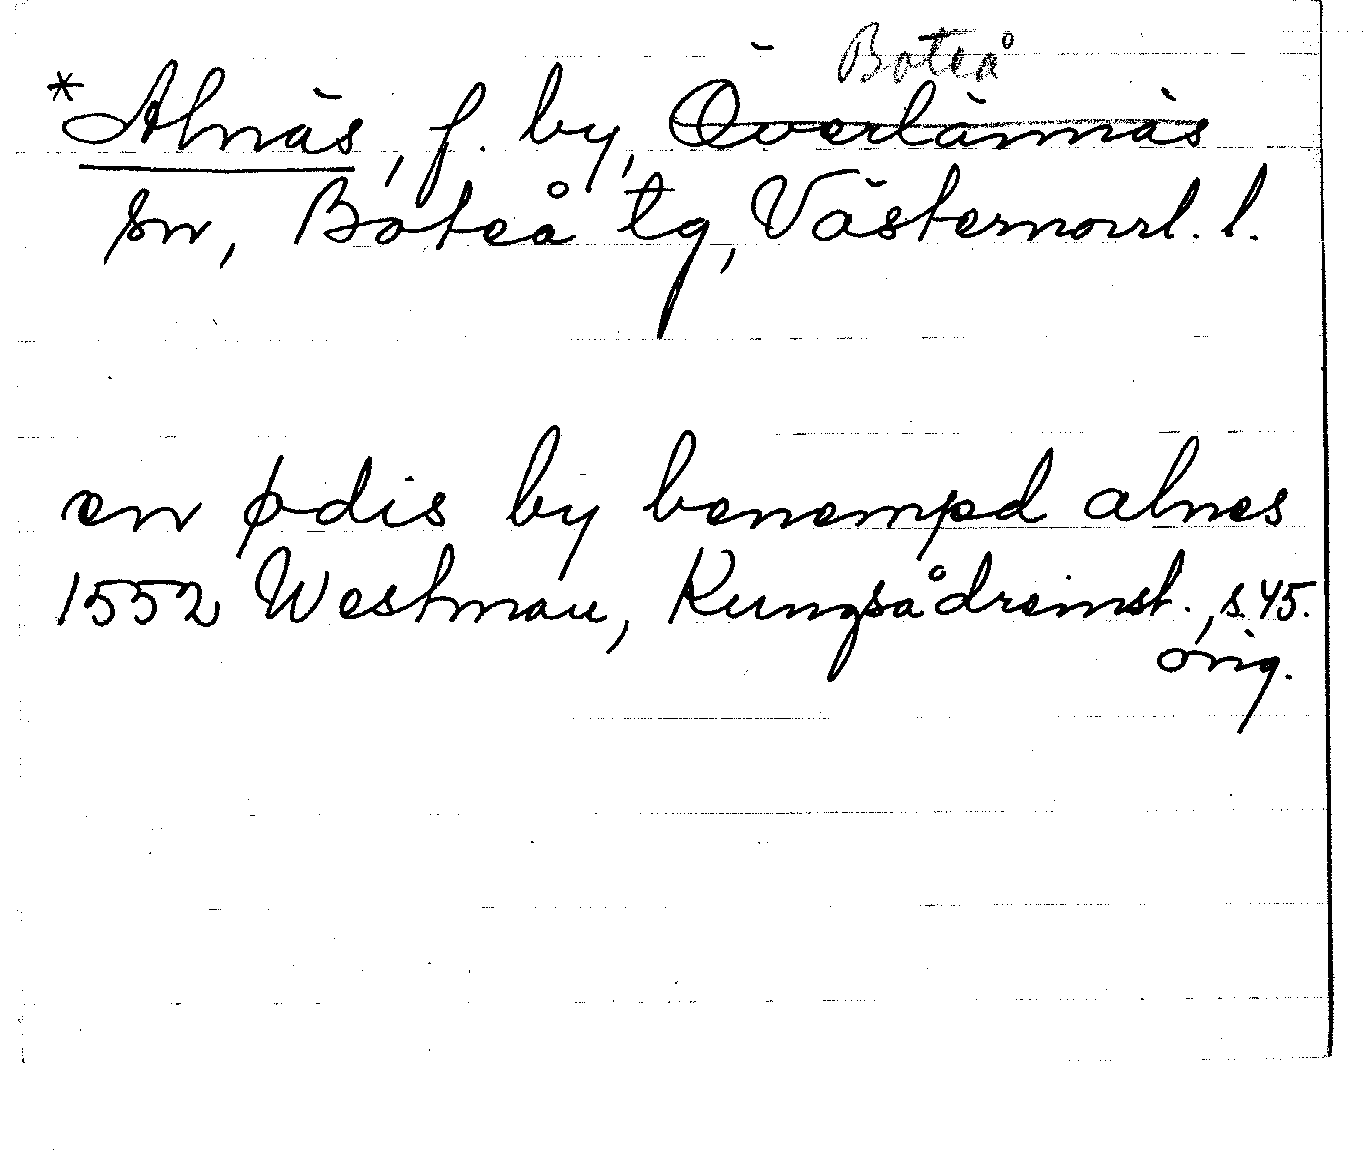 Boteå
*Alnäs, f. by, Överlännäs
sn, Boteå tg, Västernorrl. l.
en ødis by benempd alnes
1552 Westman, Kungsådreinst., s. 45.
orig.